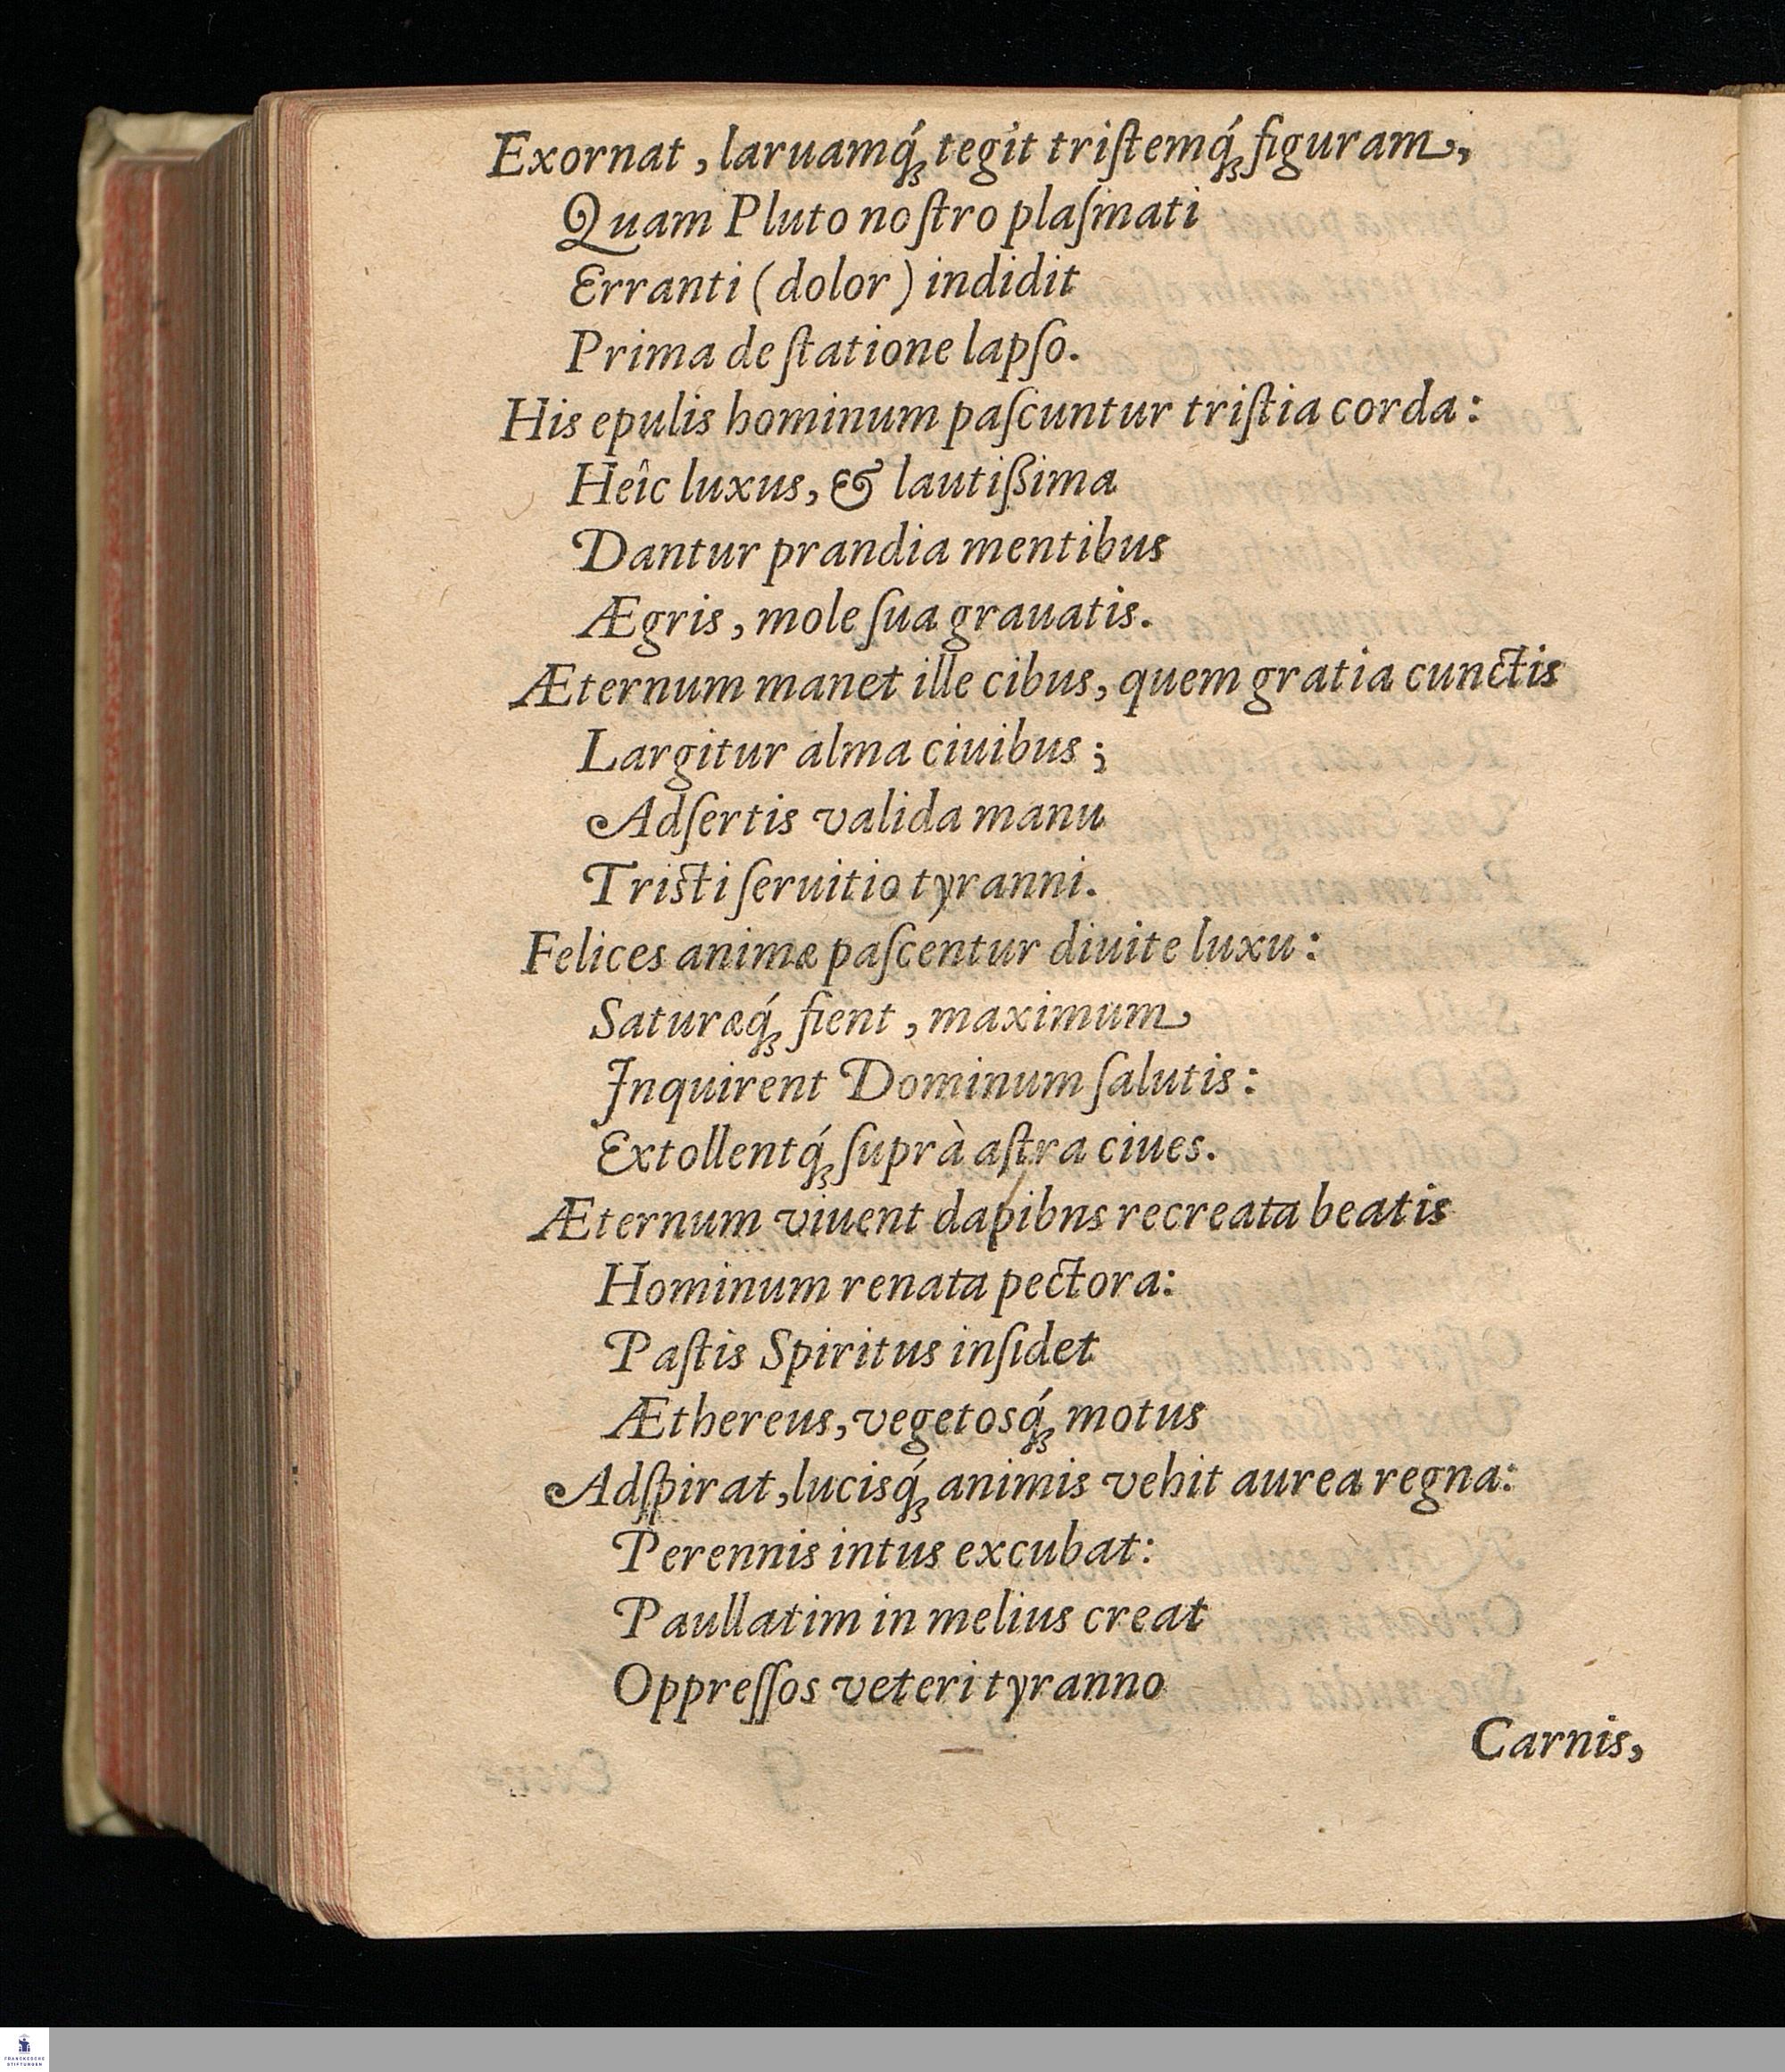 Exornat, laruamq́ꝫ tegit triſtemq́ꝫ figuram,
Quam Pluto noſtro plaſmati
Erranti (dolor) indidit
Prima de ſtatione lapſo.
His epulis hominum paſcuntur triſtia corda:
Heîc luxus, & lautißima
Dantur prandia mentibus
Ægris, mole ſua grauatis.
Æternum manet ille cibus, quem gratia cunctis
Largitur alma ciuibus;
Adſertis valida manu
Tristi ſeruitio tyranni.
Felices animæ paſcentur diuite luxu:
Saturæq́ꝫ fient, maximum
Inquirent Dominum ſalutis:
Extollentq́ꝫ ſuprà aſtra ciues.
Æternum viuent dapibns recreata beatis
Hominum renata pectora:
Paſtis Spiritus inſidet
Æthereus, vegetosq́ꝫ motus
Adſpirat, lucisq́ꝫ animis vehit aurea regna:
Perennis intus excubat:
Paullatim in melius creat
Oppreſſos veteri tyranno
Carnis,
FRANCKESCHE
STIFTUNGEN